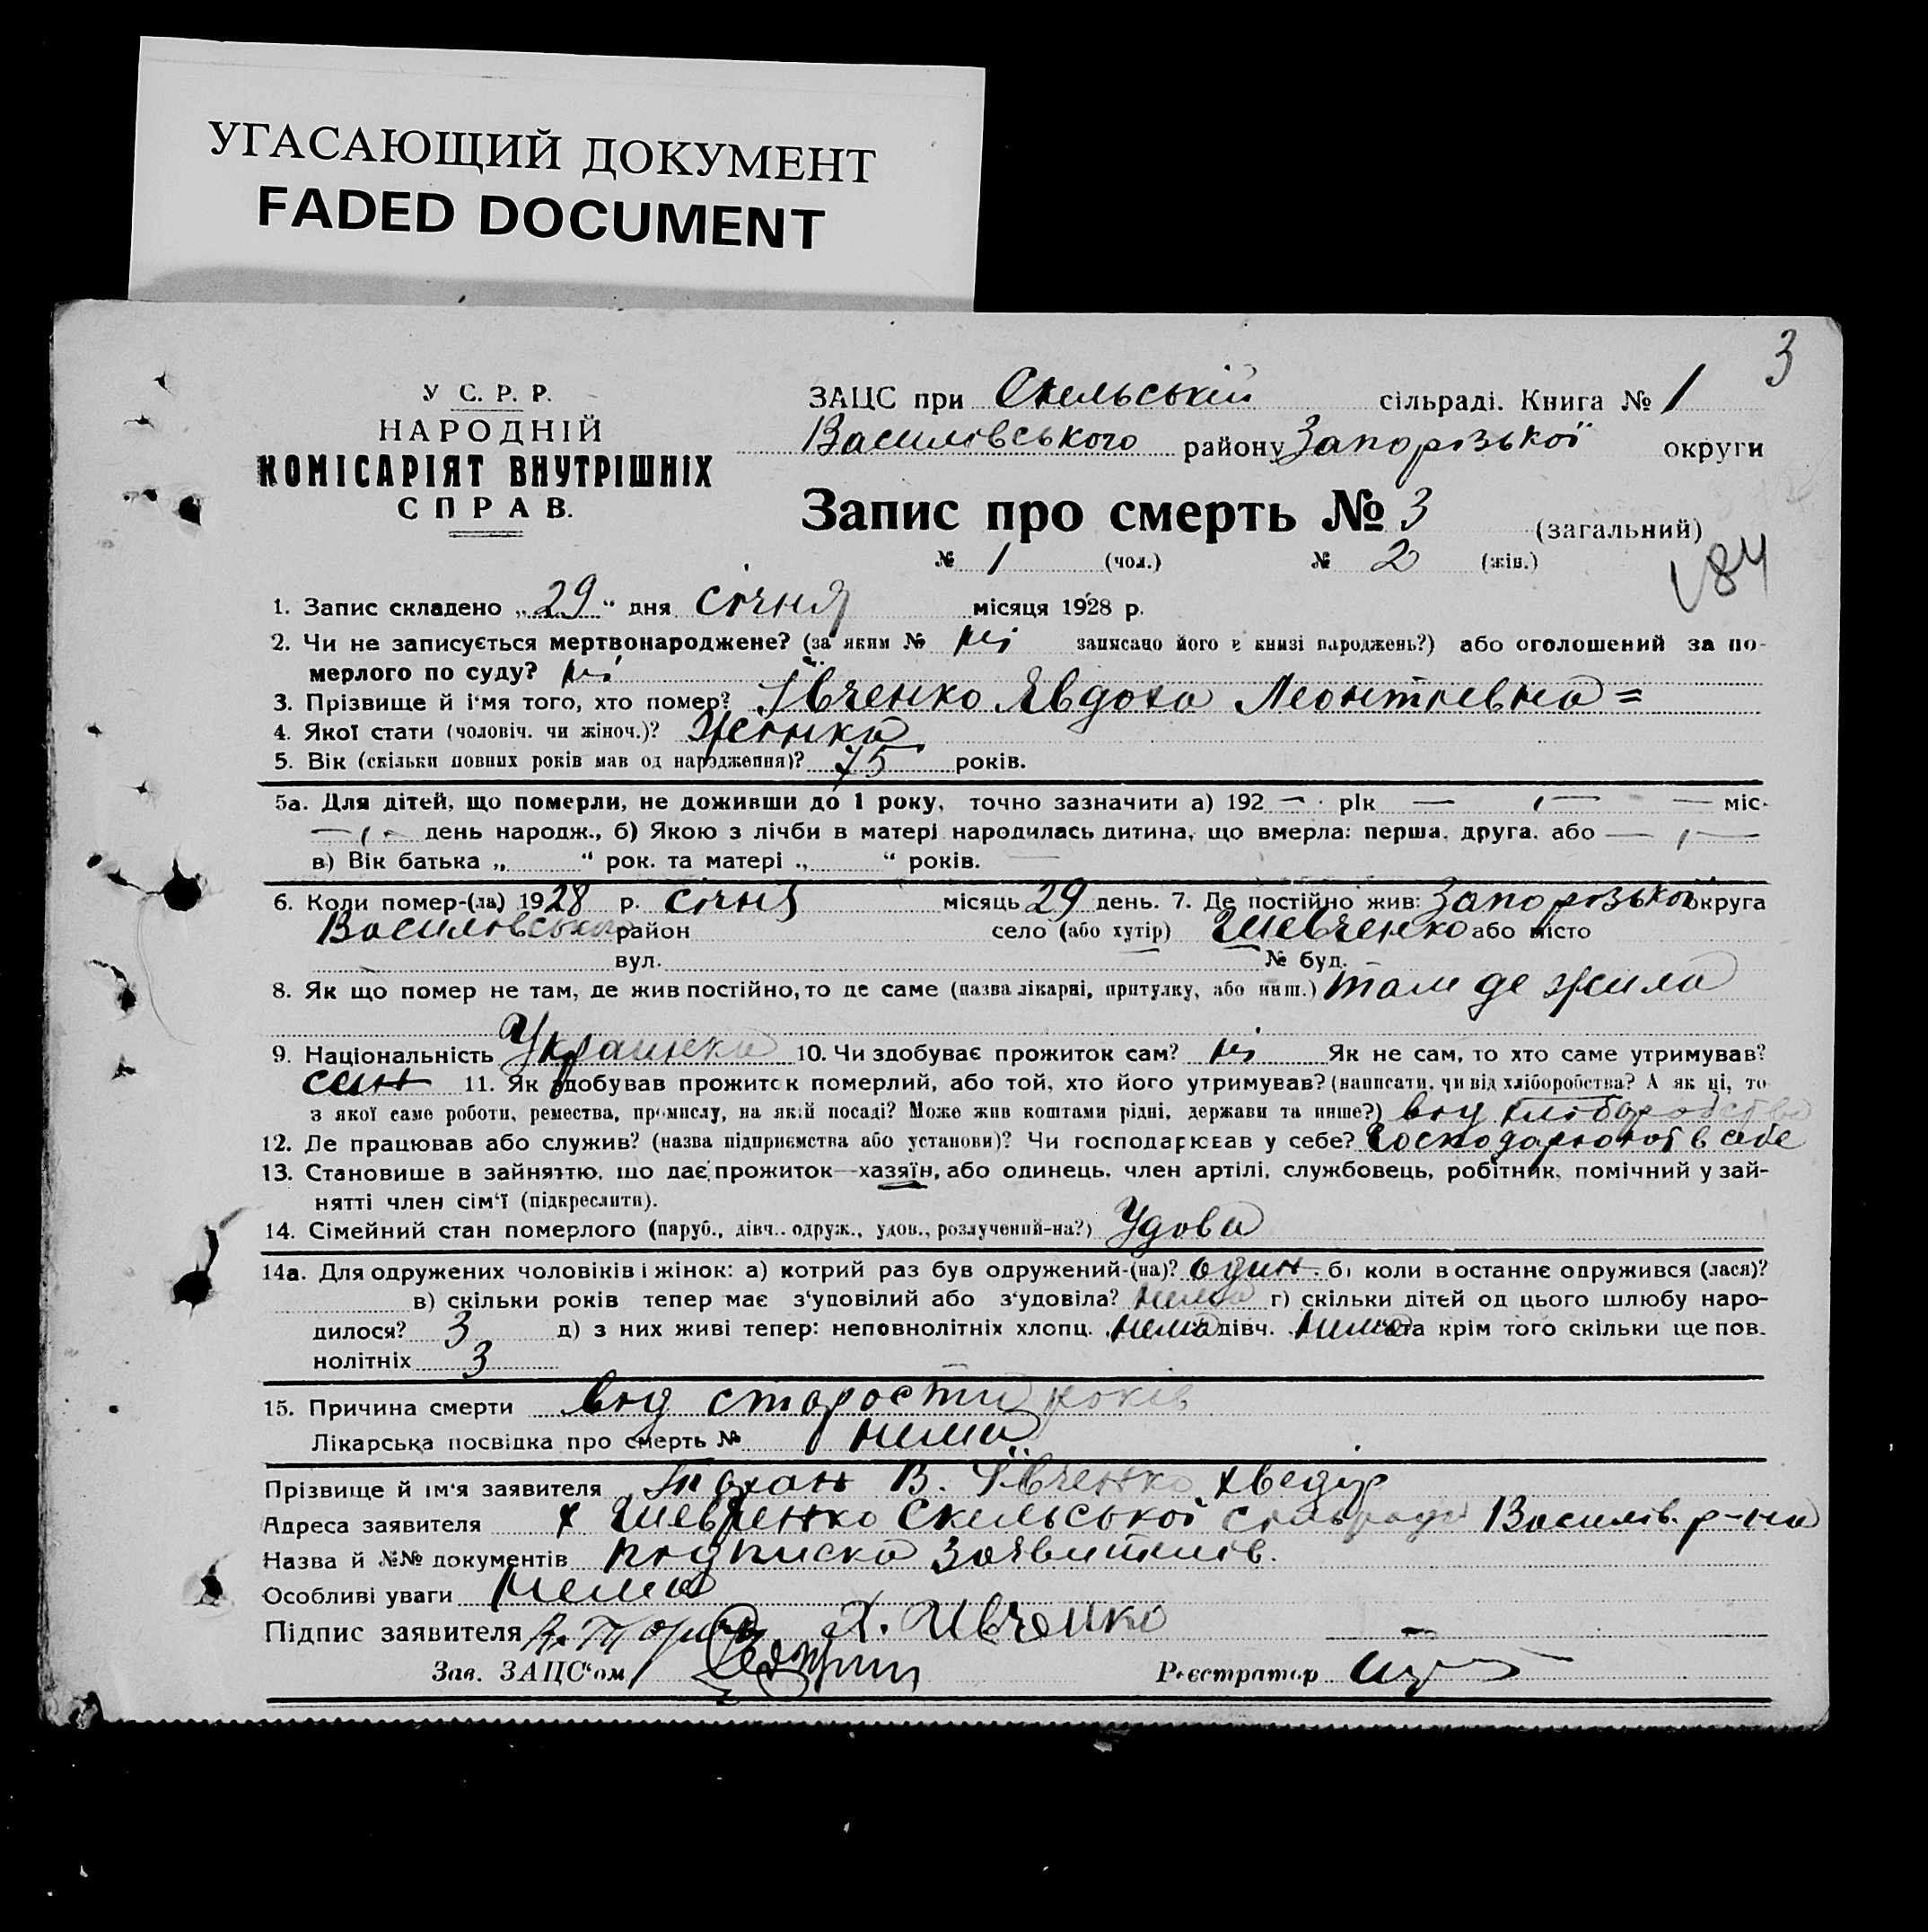 УГАСАЮЩИЙ ДОКУМЕНТ
FADED DOCUMENT
3
У С. Р. Р.
НАРОДНІЙ
КОМІСАРІЯТ ВНУТРІШНІХ
СПРАВ.
ЗАЦС при Скельській сільраді. Книга № 1
Василівського району Запорізької округи
Запис про смерть № 3 (загальний)
№ 1 (чол.) № 2 (жін.)
84
1. Запис складено „29“ дня січня місяця 1928 р.
2. Чи не записується мертвонароджене? (за яким № ні записано його в книзі народжень?) або оголошений за по-
мерлого по суду? ні
3. Прізвище й і'мя того, хто помер? Ївченко Явдоха Леонтиевна =
4. Якої стати (чоловіч. чи жіноч.)? Жінка
5. Вік (скільки повних років мав од народження)? 75 років.
5а. Для дітей, що померли, не доживши до 1 року, точно зазначити а) 192 — рік — — міс-
— день народж., б) Якою з лічби в матері народилась дитина, що вмерла: перша, друга, або —
в) Вік батька „ “ рок. та матері „ “ років.
6. Коли помер-(ла) 1928 р. січня місяць 29 день. 7. Де постійно жив: Запорізької округа
Василівського район село (або хутір) Шевченко або місто
вул. № буд.
8. Як що помер не там, де жив постійно, то де саме (назва лікарні, притулку, або инш.) там де жила
9. Національність Украинка 10. Чи здобуває прожиток сам? ні Як не сам, то хто саме утримував?
син 11. Як здобував прожиток померлий, або той, хто його утримував? (написати, чи від хліборобства? А як ні, то
з якої саме роботи, ремества, промислу, на якій посаді? Може жив коштами рідні, держави та инше?) від хліборобства
12. Де працював або служив? (назва підприємства або установи)? Чи господарював у себе? в себе
13. Становище в зайняттю, що дає прожиток—хазяїн, або одинець, член артілі, службовець, робітник, помічний у зай-
нятті член сім'ї (підкреслити).
14. Сімейний стан померлого (паруб., дівч., одруж., удов., розлучений-на?) Удова
14а. Для одружених чоловіків і жінок: а) котрий раз був одружений-(на)? один б) коли в останнє одружився (лася)?
в) скільки років тепер має з'удовілий або з'удовіла? нема г) скільки дітей од цього шлюбу наро-
дилося? 3 д) з них живі тепер: неповнолітніх хлопц. нема дівч. нема та крім того скільки ще пов-
нолітніх 3
15. Причина смерти від старости років
Лікарська посвідка про смерть № нема
Прізвище й ім'я заявителя В. Ївченко Хведір
Адреса заявителя х Шевченко Скельської сільради Василів. р-на
Назва й №№ документів підписка заявителів.
Особливі уваги Нема
Підпис заявителя Х. Ивченко
Зав. ЗАЦС'ом Реєстратор